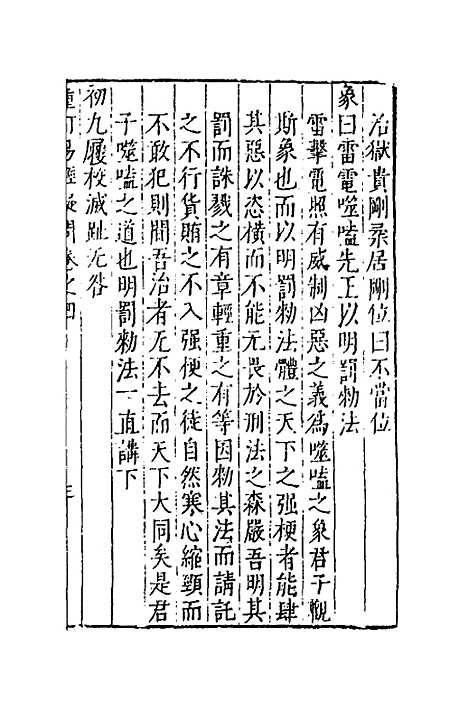 治獄貴剛柔居剛位曰不當位
象曰雷電噬嗑先王以明罰勑法
雷擊電照有威制凶惡之義爲噬嗑之象君子觀
斯象也而以明罰勑法體之天下之强梗者能肆
其惡以恣橫而不能无畏於刑法之森嚴吾明其
罰而誅戮之有章輕重之有等因勑其法而請託
之不行貨賄之不入强梗之徒自然寒心縮頸而
不敢犯則間吾治者无不去而天下大同矣是君
子噬嗑之道也明罰勑法一直講下
初九屨校滅趾无咎
重訂易經疑問卷之四 三